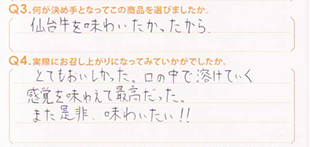 Q3.何が決め手となってこの商品を選びましたか。
仙台牛を味わいたかったから.
Q4.実際にお召し上がりになってみていかがでしたか。
とてもおいしかった。口の中で溶けていく
感覚を味わえて最高だった。
また是非.味わいたい!!